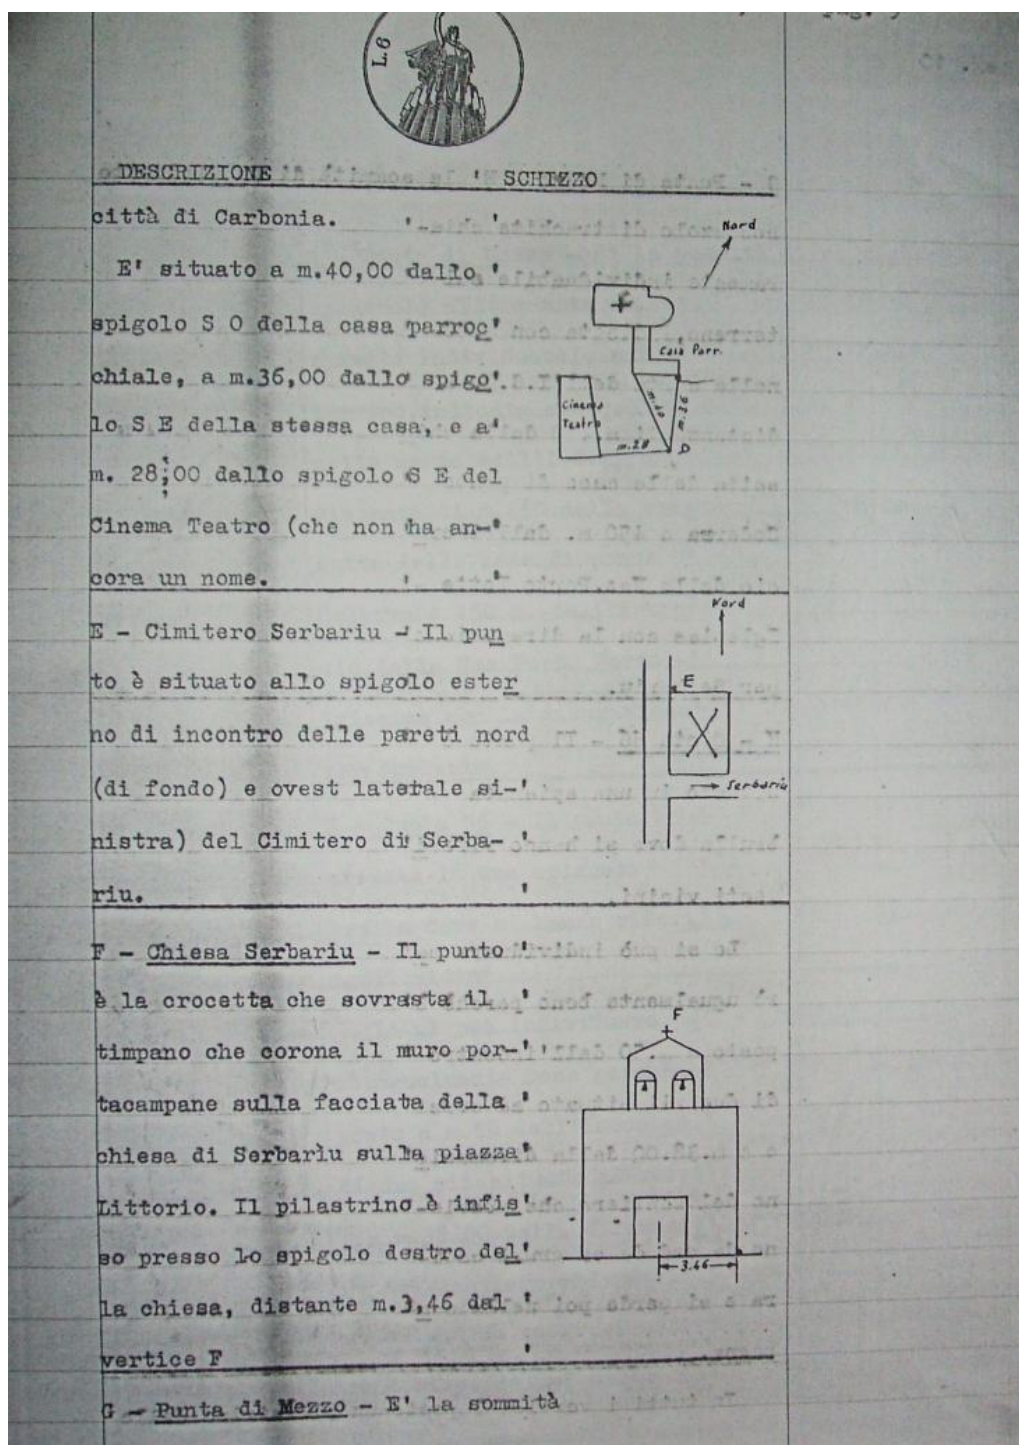 L.6
DESCRIZIONE ' SCHIZZO
città di Carbonia. ' '
E' situato a m.40,00 dallo '
spigolo S O della casa parroc'
chiale, a m.36,00 dallo spigo'
lo S E della stessa casa, e a'
m. 28,00 dallo spigolo S E del
Cinema Teatro (che non ha an-'
cora un nome. ' '
Nord
Casa Parr.
Cinema
Teatro
m.40
m.36
m.28
D
E - Cimitero Serbariu - Il pun
to è situato allo spigolo ester
no di incontro delle pareti nord
(di fondo) e ovest laterale si-'
nistra) del Cimitero di Serba- '
riu. '
Nord
E
Serbariù
F - Chiesa Serbariu - Il punto '
è la crocetta che sovrasta il '
timpano che corona il muro por-'
tacampane sulla facciata della '
chiesa di Serbarìu sulla piazza'
Littorio. Il pilastrino è infis'
so presso lo spigolo destro del'
la chiesa, distante m.3,46 dal '
vertice F '
F
3.46
G - Punta di Mezzo - E' la sommità